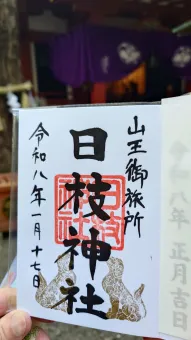 山王御旅所
日枝神社
令和八年一月十七日
正月吉日